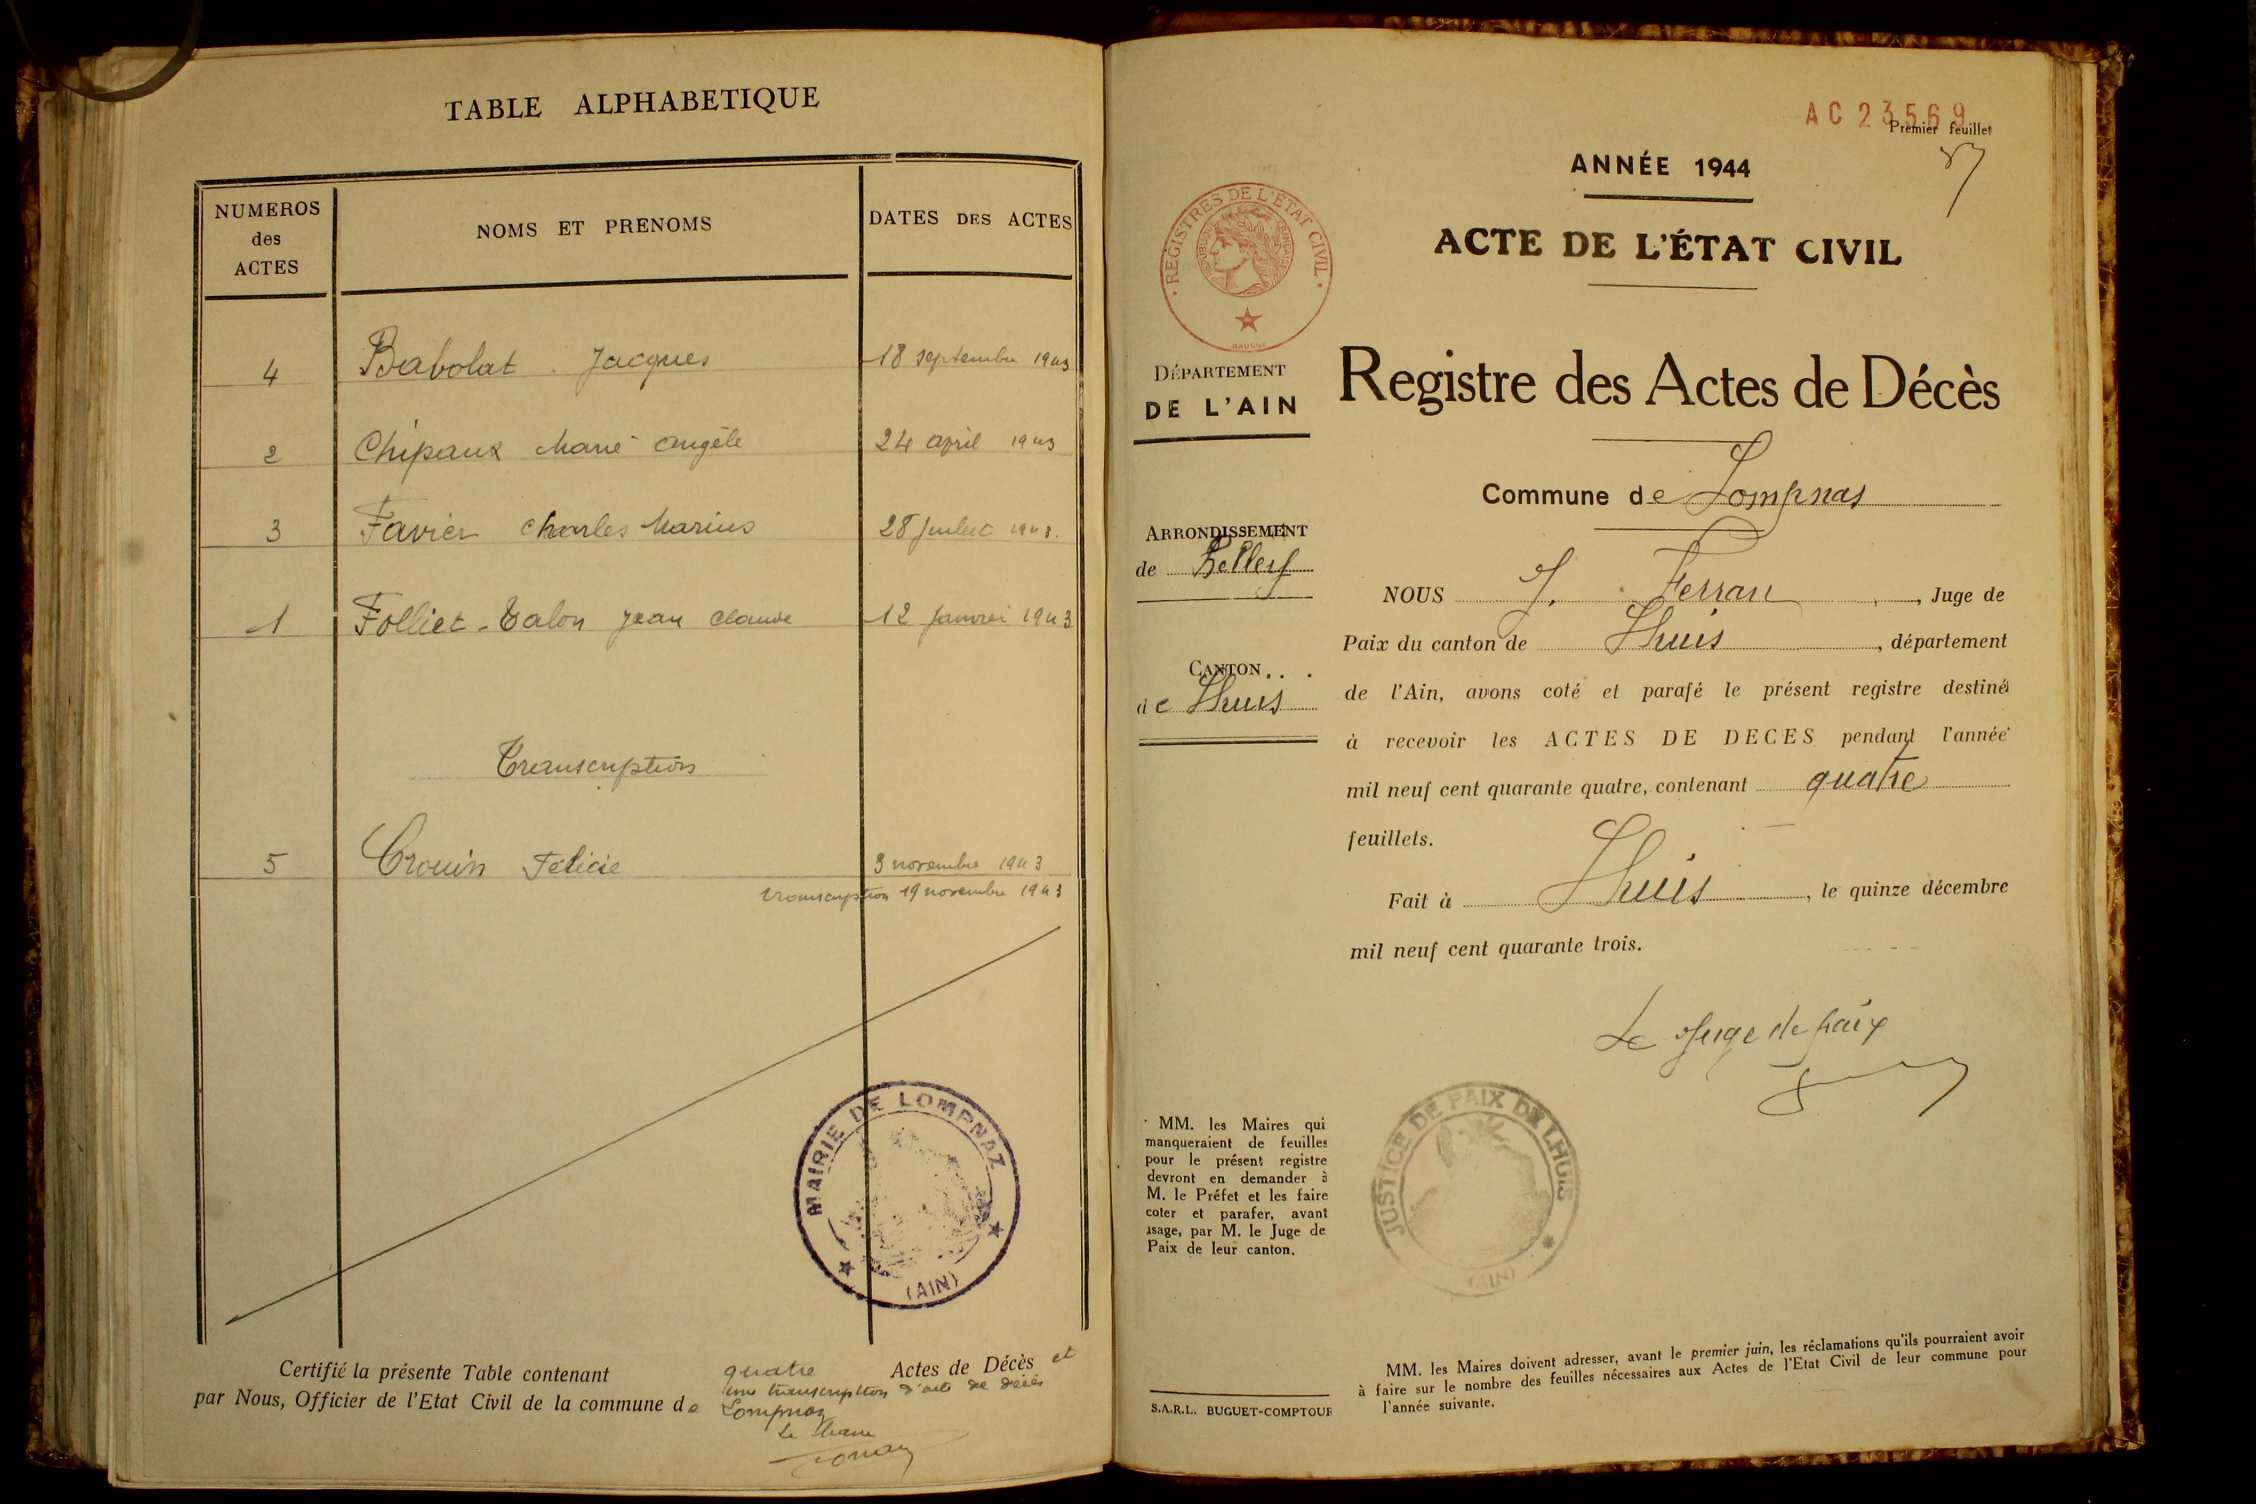 TABLE ALPHABETIQUE
NUMEROS des ACTES
NOMS ET PRENOMS
DATES DES ACTES
4 Babolat Jacques 18 septembre 1943
2 Chipaux Marie Angèle 24 avril 1943
3 Favier Charles Marius 28 juillet 1943.
1 Folliet-Talon Jean Claude 12 janvier 1943
Transcription
5 Trouin Félicie 3 novembre 1943
transcription 19 novembre 1943
MAIRIE DE LOMPNAZ
(AIN)
Certifié la présente Table contenant quatre Actes de Décès et
une transcription d'acte de décès
par Nous, Officier de l'Etat Civil de la commune de Lompnaz
Le Maire
AC 23569
Premier feuillet
ANNÉE 1944
ACTE DE L'ÉTAT CIVIL
REGISTRES DE L'ETAT CIVIL
DÉPARTEMENT
DE L'AIN
Registre des Actes de Décès
Commune de Lompnas
ARRONDISSEMENT
de Belley
CANTON
de Lhuis
NOUS J. Ferran, Juge de
Paix du canton de Lhuis, département
de l'Ain, avons coté et parafé le présent registre destiné
à recevoir les ACTES DE DECES pendant l'année
mil neuf cent quarante quatre, contenant quatre
feuillets.
Fait à Lhuis, le quinze décembre
mil neuf cent quarante trois.
Le Juge de paix
JUSTICE DE PAIX DE LHUIS
(AIN)
MM. les Maires qui
manqueraient de feuilles
pour le présent registre
devront en demander à
M. le Préfet et les faire
coter et parafer, avant
usage, par M. le Juge de
Paix de leur canton.
S.A.R.L. BUGUET-COMPTOUR
MM. les Maires doivent adresser, avant le premier juin, les réclamations qu'ils pourraient avoir
à faire sur le nombre des feuilles nécessaires aux Actes de l'Etat Civil de leur commune pour
l'année suivante.